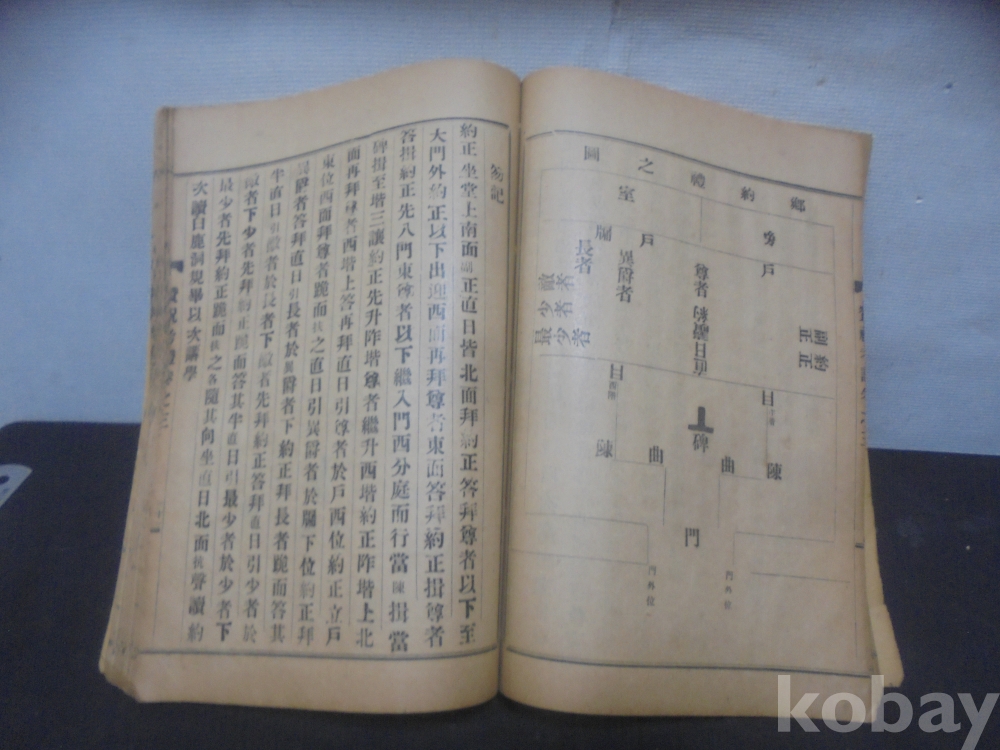 鄉約禮之圖
室
旁戶
戶
牖
尊者
異爵者
長者
敵者
少者
最少者
約正
副正
直日
碑
陳
陳
曲
曲
門
門外位
門外位
笏記
約正坐堂上南面副正直日皆北面拜約正答拜尊者以下至
大門外約正以下出迎西面再拜尊者東面答拜約正揖尊者
答揖約正先入門東尊者以下繼入門西分庭而行當陳揖當
碑揖至堦三讓約正先升阼堦尊者繼升西堦約正阼堦上北
面再拜尊者西堦上答再拜直日引尊者於戶西位約正立戶
東位西面拜尊者跪而扶之直日引異爵者於牖下位約正拜
異爵者答拜直日引長者於異爵者下約正拜長者跪而答其
半直日引敵者於長者下敵者先拜約正答拜直日引少者於
敵者下少者先拜約正跪而答其半直日引最少者於少者下
最少者先拜約正跪而扶之各隨其向坐直日北面抗聲讀約
次讀白鹿洞規畢以次講學
kobay